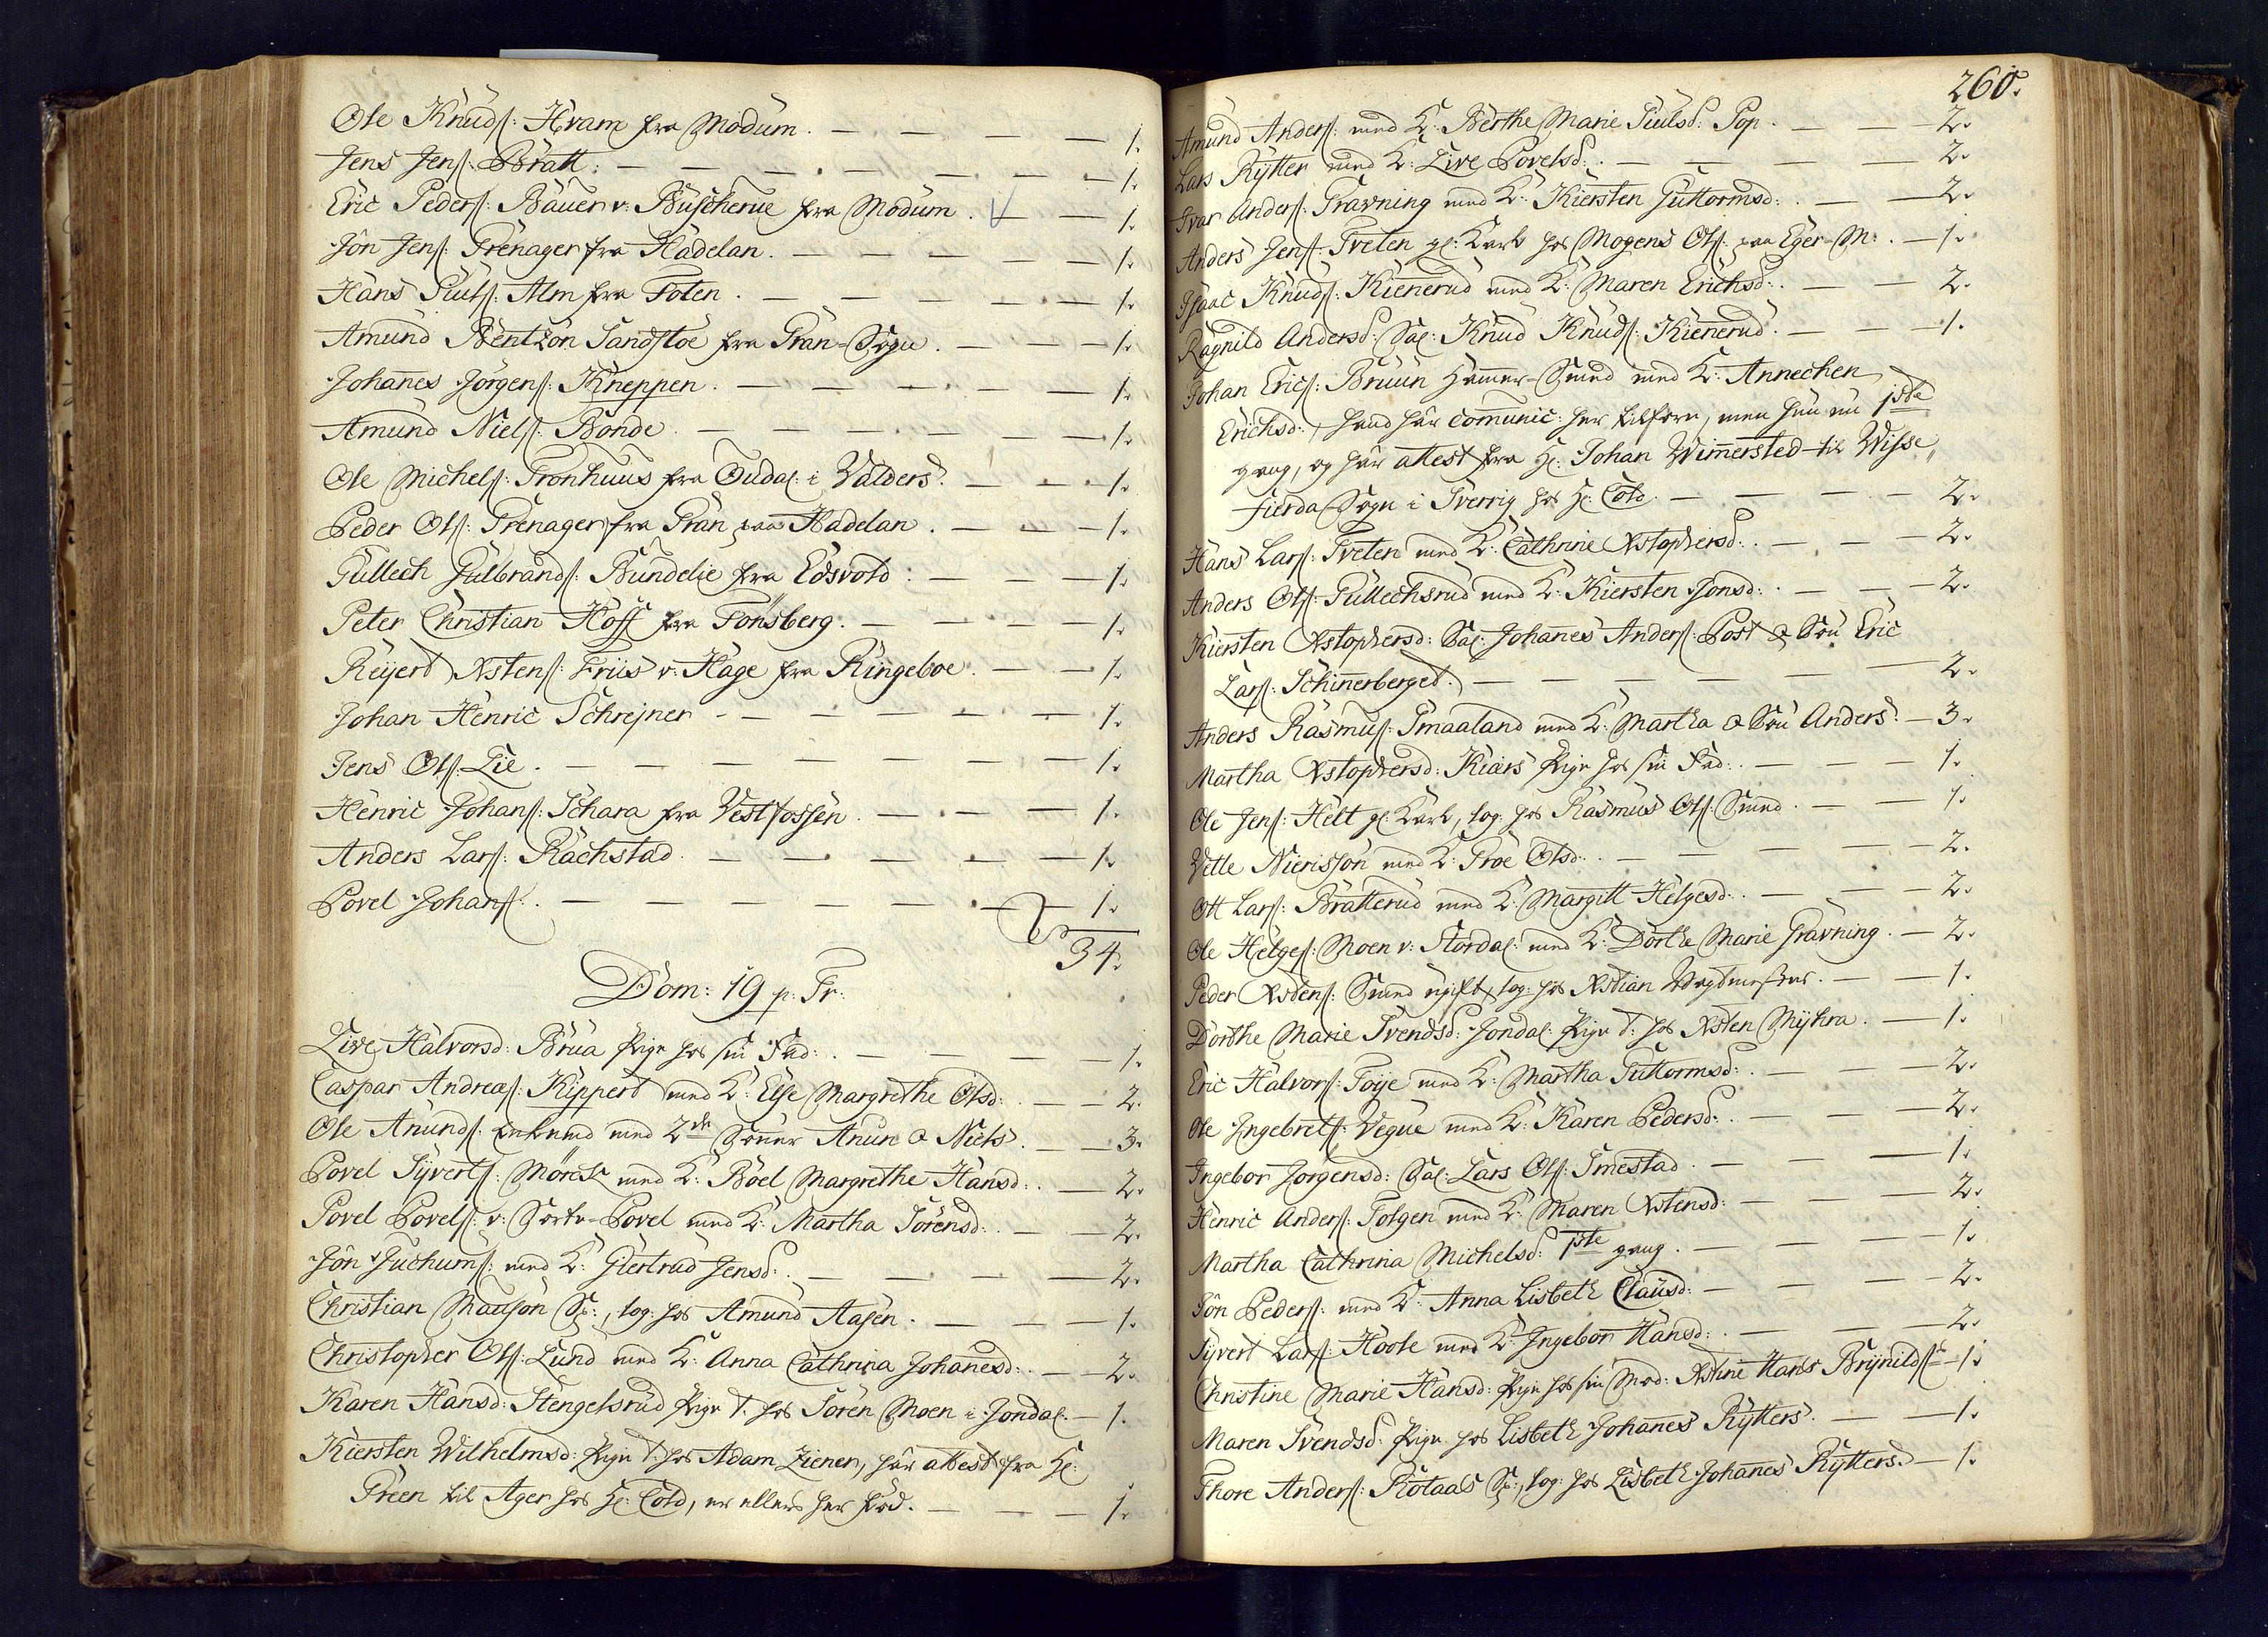 Ole Knuds: Hvam fra Modum. — 1.
Jens Jens: Bratt: — 1.
Eric Peders: Bauer v: Buscherue fra Modum. — 1.
Jôn Jens: Grenager fra Hadelan. — 1.
Hans Siuls: Alm fra Toten. — 1.
Amund Bentzon Sandstoe fra Gran-Sogn. — 1.
Johanes Jörgens: Kneppen. — 1.
Amund Niels: Bonde. — 1.
Ole Michels: Tronhuus fra Oudal: i Valders. — 1.
Peder Ols: Grenager fra Gran paa Hadelan. — 1.
Gullech Gulbrands: Bundelie fra Edsvold: — 1.
Peter Christian Hoff fra Tonsberg. — 1.
Reyert Xstens: Friis v: Hage fra Ringeboe. — 1.
Johan Henric Schrejner — 1.
Jens Ols: Lie. — 1.
Henric Johans: Schara fra Vestfossen. — 1.
Anders Lars: Rachstad. — 1.
Povel Johans: — 1.
34.
Dom: 19 p. Tr:
Live Halvorsd: Brua Pige hos sin Fad: — 1.
Caspar Andreas: Kippert med K: Else Margrethe Olsd: — 2.
Ole Anunds: Enkemd med 2de Sönner Anun & Niels. — 3.
Povel Syverts: Mörch med K: Boel Margrethe Hansd: — 2.
Povel Povels: v: Sorte-Povel med K: Martha Sörensd: — 2.
Jôn Juchums: med K: Giertrud Jensd: — 2.
Christian Mauson Sp:, log: hos Amund Aasen. — 1.
Christopher Ols: Lund med K: Anna Cathrina Johanesd: — 2.
Karen Hansd: Stengelsrud Pige t: hos Sören Moen i Jondal: — 1.
Kiersten Wilhelmsd: Pige t: hos Adam Ziener, har attest fra Hr:
Green til Ager hos Hr: Cold, er ellers her föd. — 1.
260.
Amund Anders: med K: Berthe Marie Siulsd: Pop. — 2.
Lars Rytter med K: Live Povelsd: — 2.
Ivar Anders: Gravning med K: Kiersten Guttormsd: — 2.
Anders Jens: Tveten gl: Karl hos Mogens Ols: paa Eger-M: — 1.
Isaac Knuds: Kienerud med K: Maren Erichsd: — 2.
Ragnild Andersd: Sal: Knud Knuds: Kienerud. — 1.
Johan Erics: Bruun Hamer-Smed med K: Annechen
Erichsd:, hand har comunic: her tilforn, men hun nu 1ste
gang, og har attest fra Hr: Johan Wimersted til Wisse,,
fierda Sogn i Sverrig hos Hr: Cold. — 2.
Hans Lars: Tveten med K: Cathrine Xstophersd: — 2.
Anders Ols: Gullechsrud med K: Kiersten Jonsd: — 2.
Kiersten Xstophersd: Sal: Johanes Anders: Post & Sön Eric
Lars: Schinerberget. — 2.
Anders Rasmus: Smaaland med K: Martha & Sön Anders. — 3.
Martha Xstophersd: Kiärs Pige hos sin Fad: — 1.
Ole Jens: Helt gl: Karl, log: hos Rasmus Ols: Smed. — 1.
Vetle Nierisson med K: Groe Olsd: — 2.
Ott Lars: Bratterud med K: Margitt Helgesd: — 2.
Ole Helges: Moen v: Stordal: med K: Dorthe Marie Gravning. — 2.
Peder Xstens: Smed ugift, log: hos Xstian Vagtmester. — 1.
Dorthe Marie Svendsd: Jondal: Pige t: hos Xsten Myhra. — 1.
Eric Halvors: Foÿe med K: Martha Guttormsd: — 2.
Ole Ingebrets: Vegue med K: Karen Pedersd: — 2.
Ingebor Jorgensd: Sal: Lars Ols: Smestad. — 1.
Henric Anders: Tolgen med K: Maren Xstensd: — 2.
Martha Cathrina Michelsd: 1ste gang. — 1.
Jôn Peders: med K: Anna Lisbeth Clausd: — 2.
Syvert Lars: Hoole med K: Ingebor Hansd: — 2.
Christine Marie Hansd: Pige hos sin Mod: Xstine Hans Brynilds: — 1.
Maren Svendsd: Pige hos Lisbeth Johanes Rytters. — 1.
Thore Anders: Rotaas Sp:, log: hos Lisbeth Johanes Rytters. — 1.